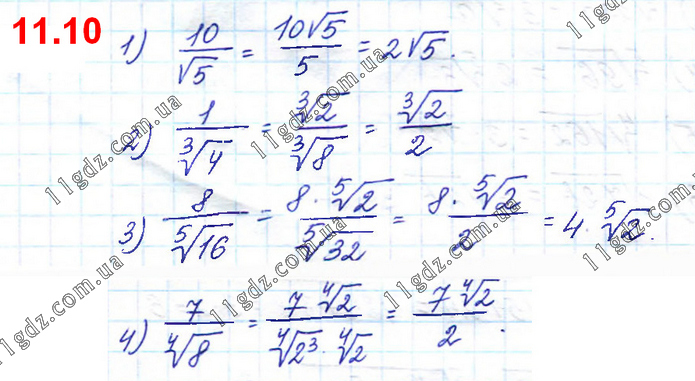 11.10
1) 10/√5 = 10√5/5 = 2√5.
2) 1/∛4 = ∛2/∛8 = ∛2/2
3) 8/⁵√16 = 8·⁵√2/⁵√32 = 8·⁵√2/2 = 4·⁵√2.
4) 7/⁴√8 = 7⁴√2/⁴√2³·⁴√2 = 7⁴√2/2.
11gdz.com.ua
11gdz.com.ua
11gdz.com.ua
11gdz.com.ua
11gdz.com.ua
11gdz.com.ua
11gdz.com.ua